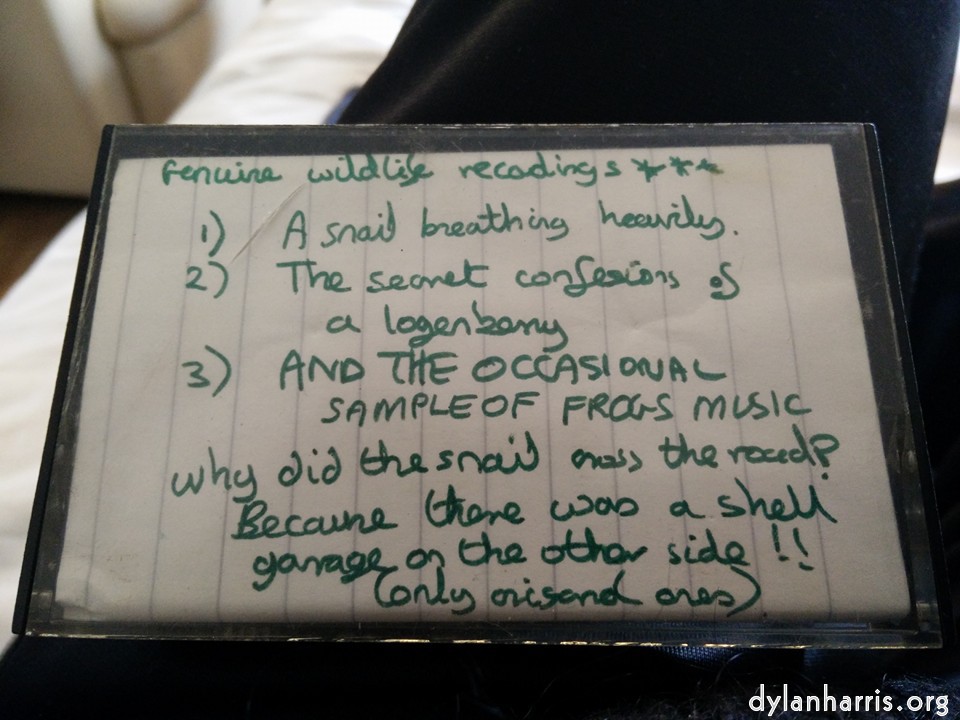 Genuine wildlife recodings ***
1) A snail breathing heavily.
2) The secret confesions of
a logenberry
3) AND THE OCCASIONAL
SAMPLE OF FROGS MUSIC
why did the snail cross the road?
Because there was a shell
garage on the other side !!
(only orisond ones)
dylanharris.org